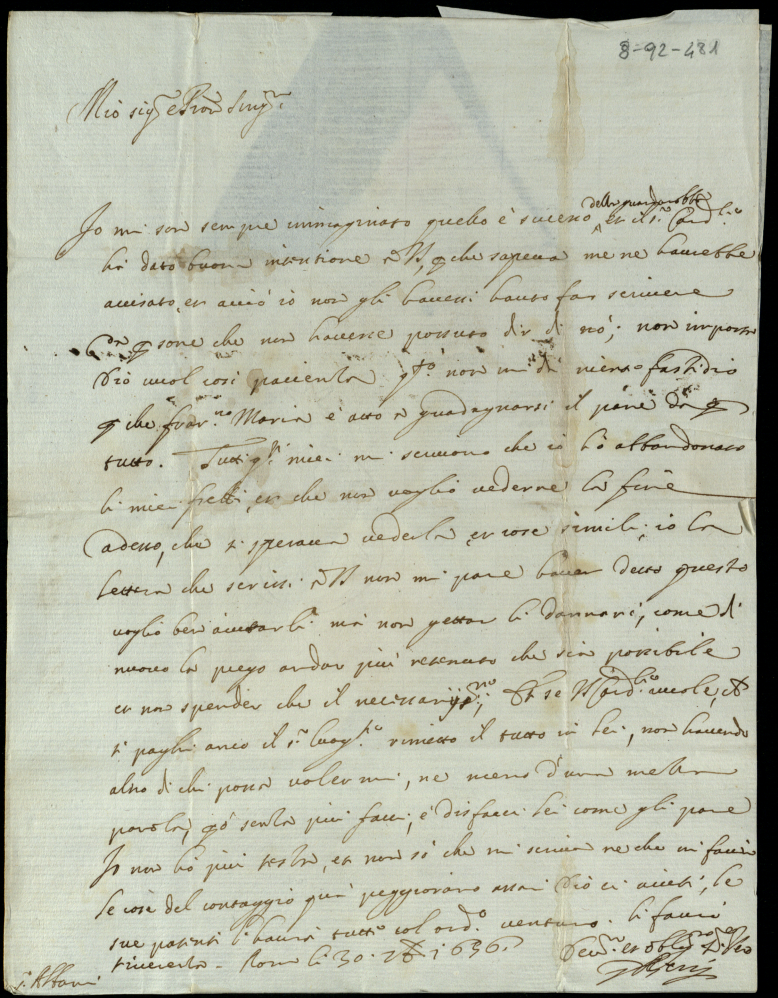 8-92-481
Mio sig.r e Pron Sing.r
della guardarobba
Io mi son sempre immaginato quello è sucesso, et il s.r Card.le
ha dato buona intentione à VS, p che sapeva me ne haverebbe
avisato, et acciò io non gli havessi hauto far scrivere
da p sone che non havesse possuto dir di nò; non importa
Dio vuol cosi pacienza q.to non mi dà niente fastidio
p che Fran.co Maria è atto à guadagnarsi il pane da p
tutto. Tutti q.li miei mi scrivono che io hò abbandonato
li miei fr̃elli, et che non voglio vederne la fine
adesso, che si sperava vederla et cose simili, io la
lettera che scrissi à VS non mi pare haver detto questo
voglio ben aiutarli mà non gettar li dannari, come di
nuovo la prego andar più retenuto che sia possibile
et non spender che il necessariss.mo; Et se il Card.le vuole, che
si paghi anco il s.r Luog.te rimetto il tutto in lei, non havendo
altro di chi possa valermi, ne meno d'una mezza
parola, p ò senza più facci, è disfacci lei come gli pare
Io non hò più testa, et non sò che mi scriva ne che mi facci
le cose del contaggio quà peggiorano assai Dio ci aiuti, le
sue patenti l'haverà tutte col ord.o venturo. li facci
riverenza. Roma li 30. 7bre 1656.
Dev.mo et oblig.mo